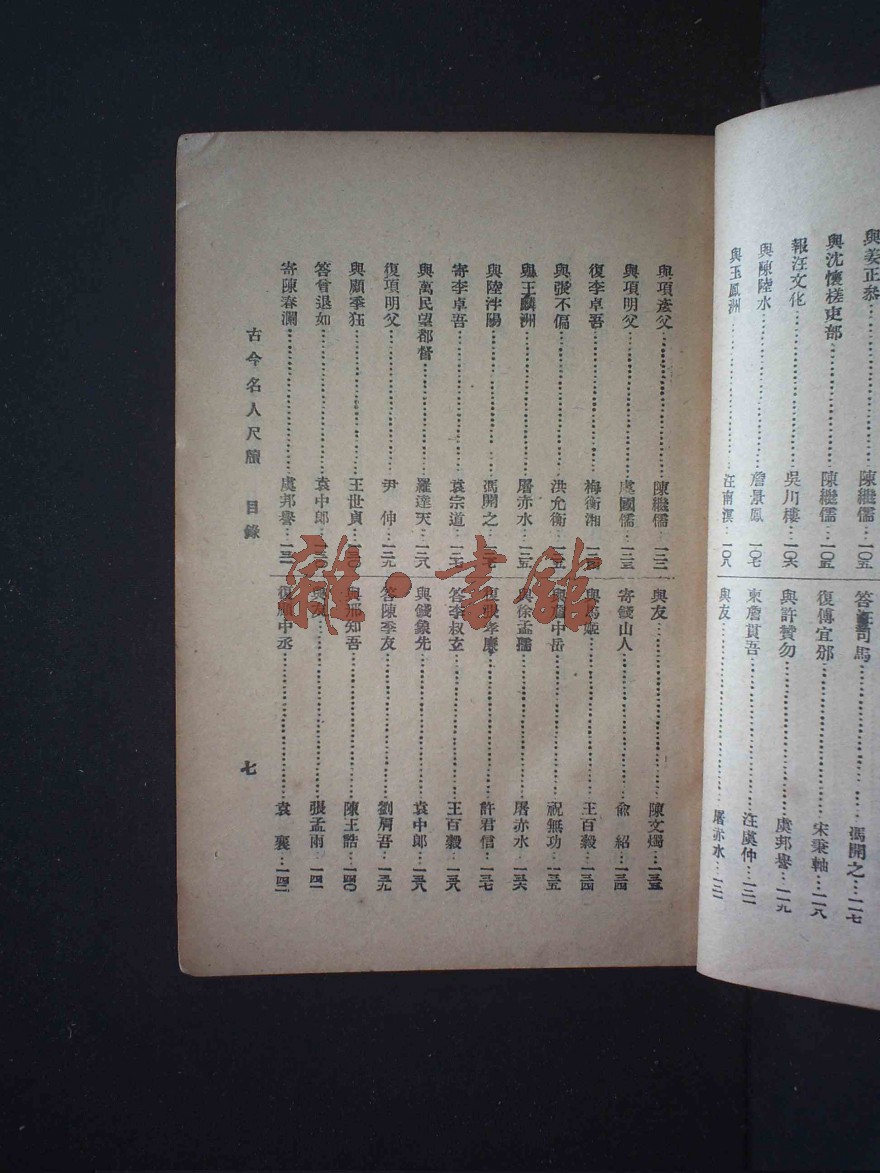 與姜正泰…陳繼儒…一〇五
與沈懷槎吏部…陳繼儒…一〇五
報汪文化…吳川樓…一〇六
與陳陸水…詹景鳳…一〇七
與玉鳳洲…汪南溟…一〇八
答汪司馬…馮開之…一一七
復傅宜邠…宋秉軸…一一八
與許贊勿…虞邦譽…一一九
柬詹貫吾…汪虞仲…一二一
與友…屠赤水…一三一
與項彥父…陳繼儒…一三二
與項明父…虞國儒…一三三
復李卓吾…梅衡湘
與張不偏…洪允衡…一三五
與王麟洲…屠赤水…一三五
與陸泮陽…馮開之
寄李卓吾…袁宗道
與萬民望都督…羅達天…一三八
復項明父…尹伸…一三九
與顧季狂…王世貞…一四〇
答曾退如…袁中郎
寄陳春瀾…虞邦譽
與友…陳文燭…一三三
寄錢山人…俞紹…一三四
與馬姬…王百穀…一三四
祝無功…一三五
與徐孟孺…屠赤水…一三六
復張孝廉…許君信…一三七
答李叔玄…王百穀…一三八
與錢象先…袁中郎…一三八
答陳季友…劉屑吾…一三九
與邢知吾…陳玉誥…一四〇
與友…張孟雨…一四一
復顧中丞…袁襄…一四二
古今名人尺牘 目錄
七
雜·書館